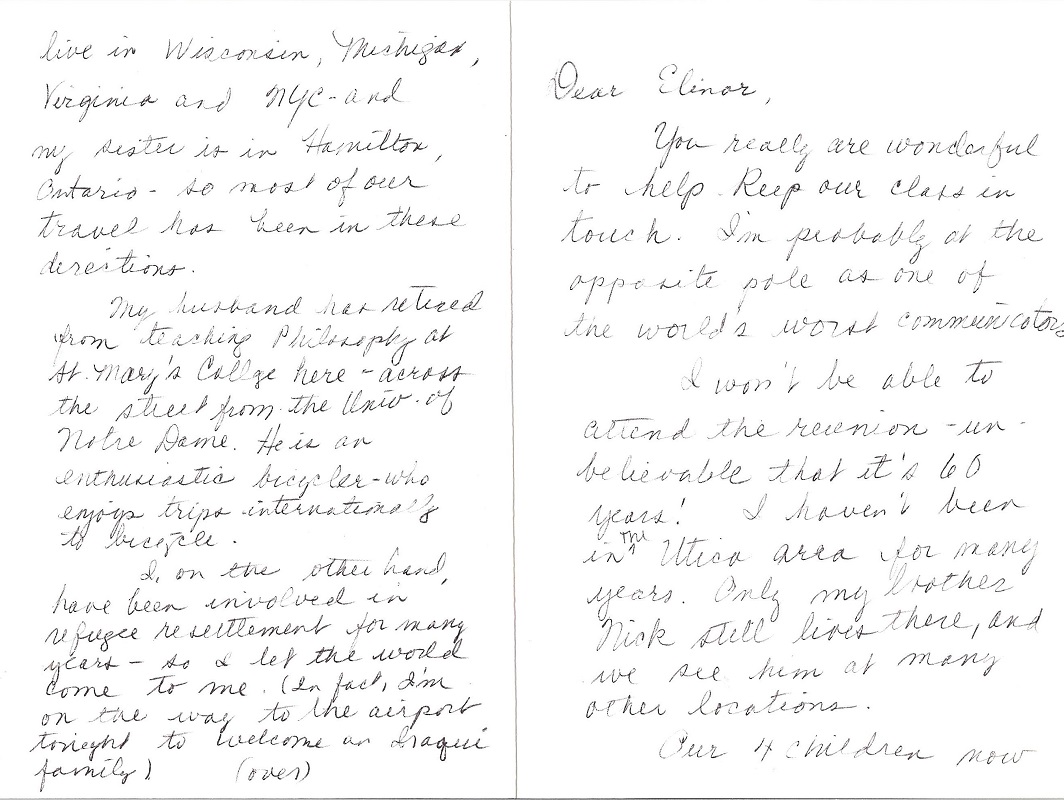 Dear Elinor,
You really are wonderful
to help keep our class in
touch. I'm probably at the
opposite pole as one of
the world's worst communicators
I won't be able to
attend the reunion - un-
believable that it's 60
years! I haven't been
in the Utica area for many
years. Only my brother
Nick still lives there, and
we see him at many
other locations.
Our 4 children now
live in Wisconsin, Michigan,
Virginia and NYC - and
my sister is in Hamilton,
Ontario - so most of our
travel has been in these
directions.
My husband has retired
from teaching Philosophy at
St. Mary's Collge here - across
the street from the Univ. of
Notre Dame. He is an
enthusiastic bicycler - who
enjoys trips internationally
to bicycle.
I, on the other hand,
have been involved in
refugee resettlement for many
years - so I let the world
come to me. (In fact, I'm
on the way to the airport
tonight to welcome an Iraqui
family) (over)